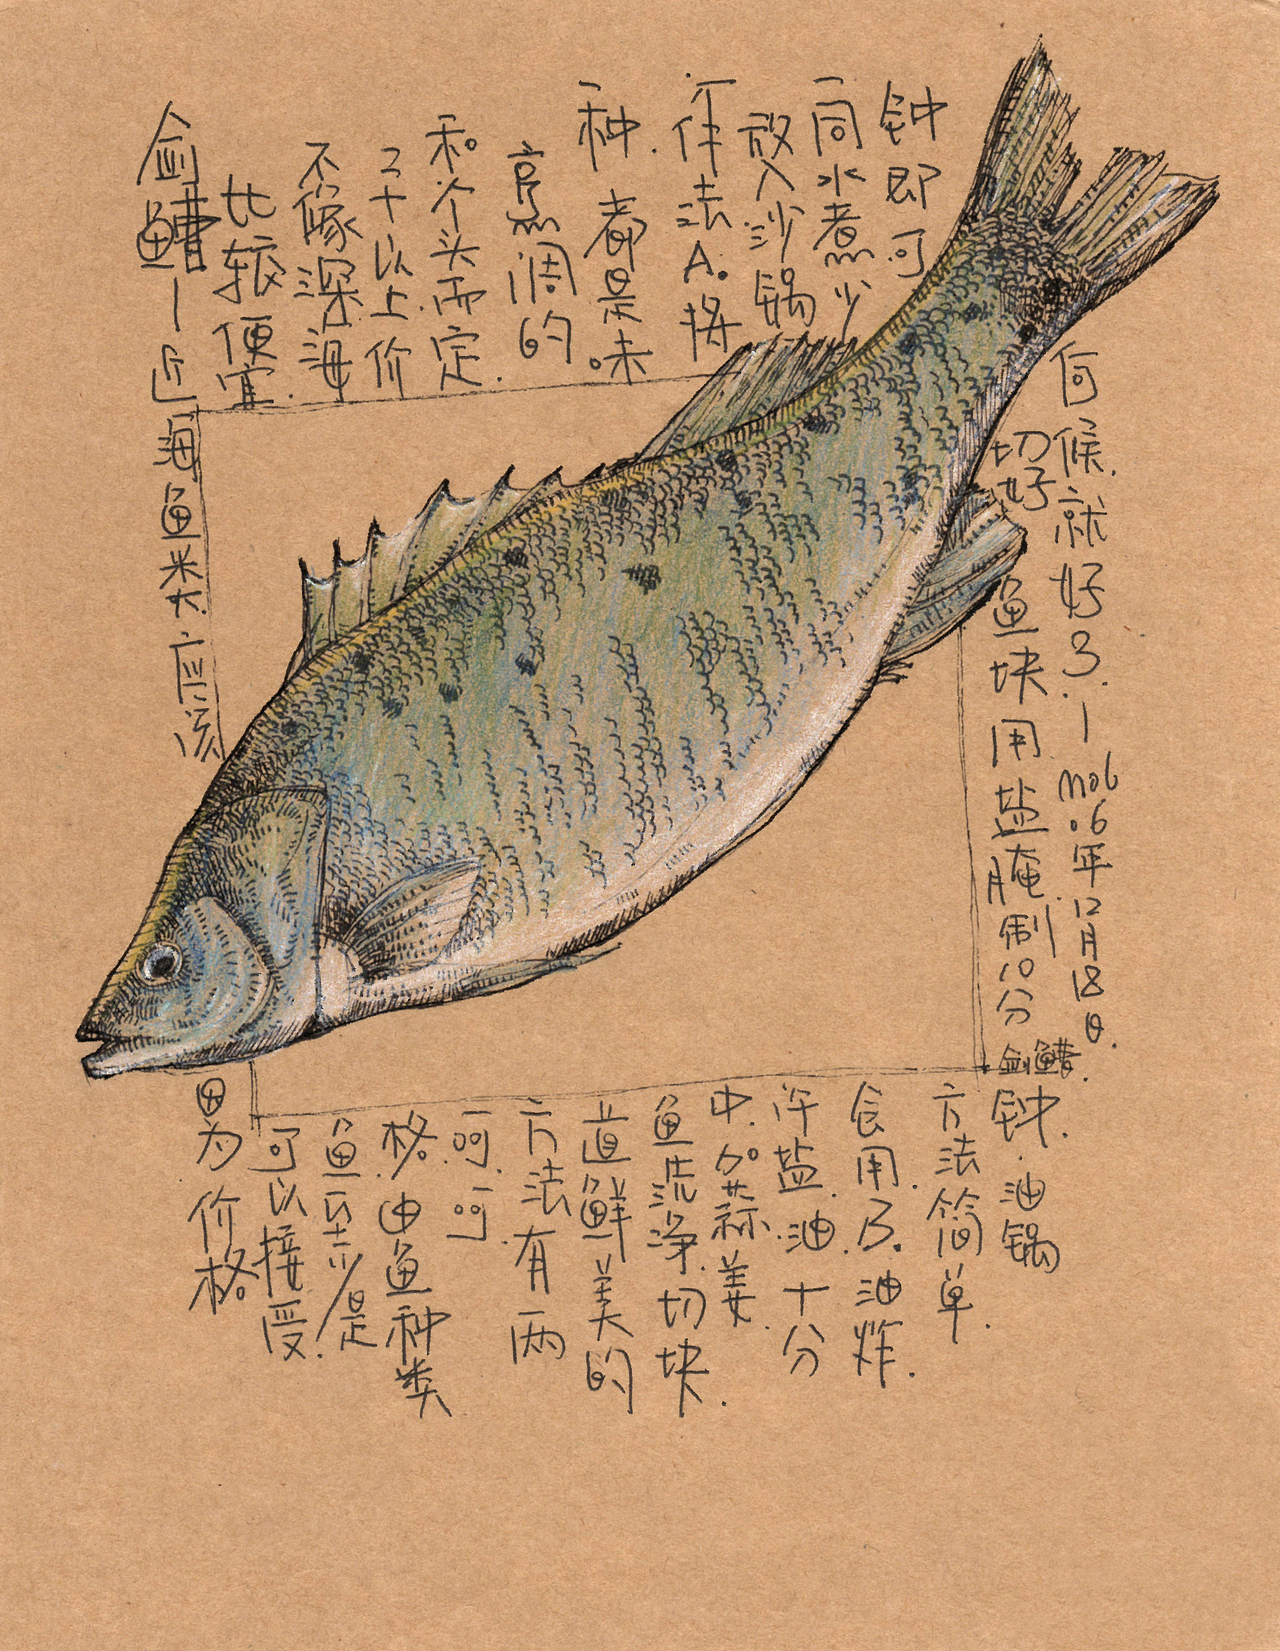 剑鰽—近海鱼类应该
因为价格
比较便宜.
可以接受.
不像深海
鱼至少是
几十以上价
格.由鱼种类
和个头而定.
呵呵.
烹调的
方法有两
种.都是味
道鲜美的
作法A。将
鱼洗净.切块.
放入沙锅
中.加蒜姜.
同水煮少
许盐.油.十分
钟即可
食用.B.油炸.
方法简单.
切好鱼块用盐腌制10分
钟.油锅
伺候.就好了.—mob
.06年12月18日.
剑鰽.